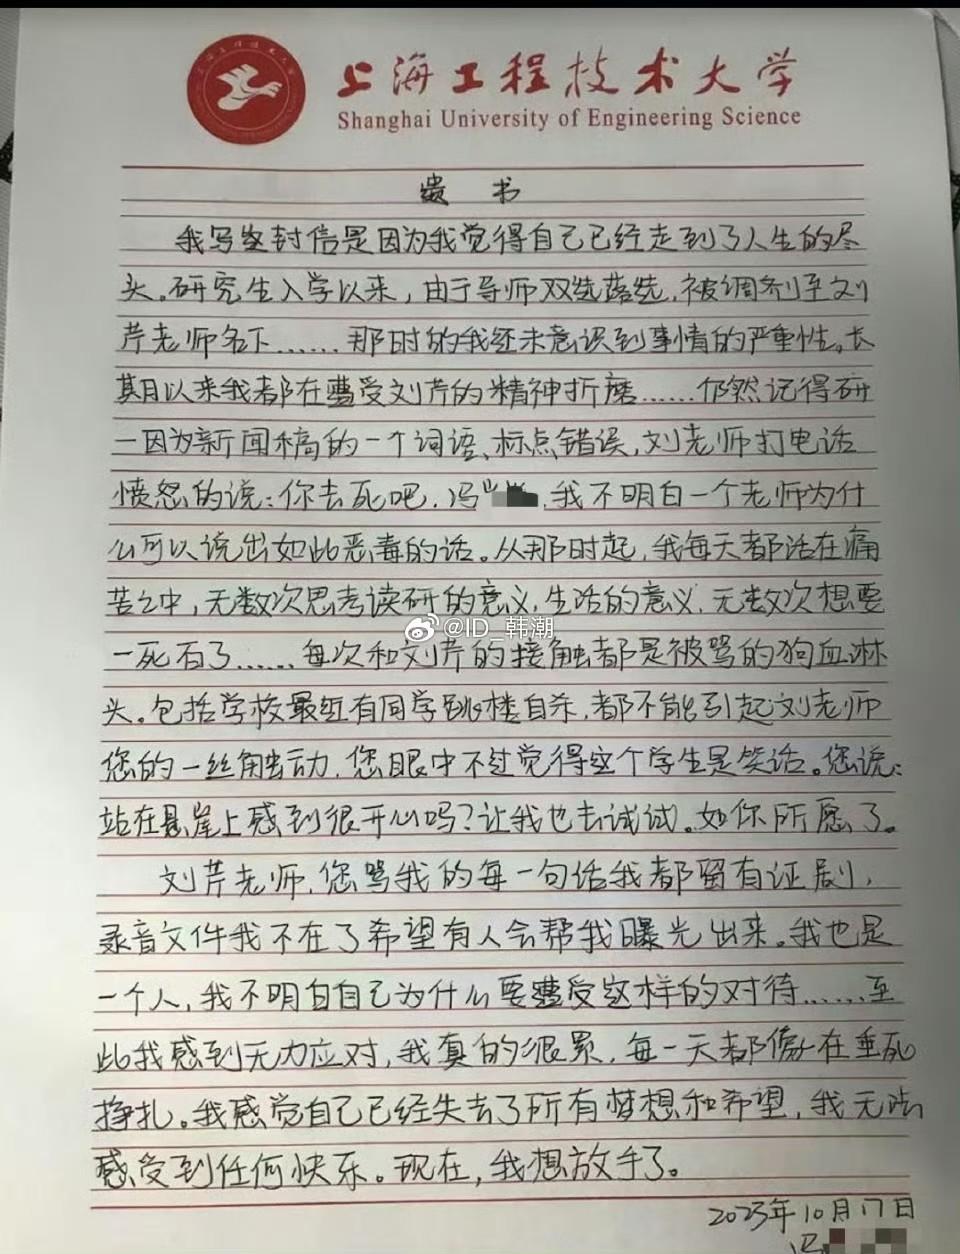 上海工程技术大学
Shanghai University of Engineering Science
遗 书
我写这封信是因为我觉得自己已经走到了人生的尽
头。研究生入学以来，由于导师双选落选，被调剂至刘
芹老师名下……那时的我还未意识到事情的严重性。长
期以来我都在遭受刘芹的精神折磨……仍然记得研
一因为新闻稿的一个词语、标点错误，刘老师打电话
愤怒的说：你去死吧，冯 ，我不明白一个老师为什
么可以说出如此恶毒的话。从那时起，我每天都活在痛
苦之中，无数次思考读研的意义，生活的意义，无数次想要
一死百了……每次和刘芹的接触都是被骂的狗血淋
@ID_韩潮
头。包括学校最近有同学跳楼自杀，都不能引起刘老师
您的一丝触动，您眼中不过觉得这个学生是笑话。您说：
站在悬崖上感到很开心吗？让我也去试试。如你所愿了。
刘芹老师，您骂我的每一句话我都留有证剧，
录音文件我不在了希望有人会帮我曝光出来。我也是
一个人，我不明白自己为什么要遭受这样的对待……至
此我感到无力应对，我真的很累，每一天都像在垂死
挣扎。我感觉自己已经失去了所有梦想和希望，我无法
感受到任何快乐。现在，我想放手了。
2023年10月17日
冯